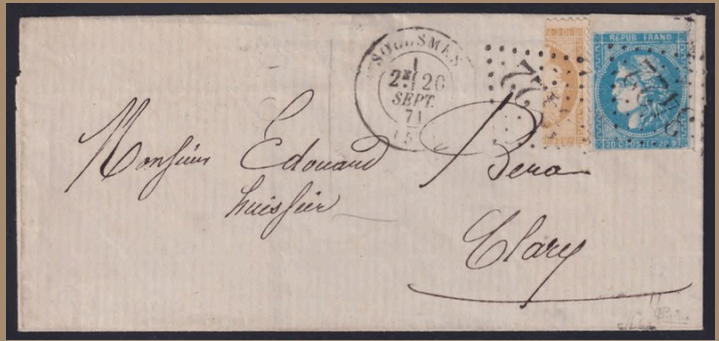 SOLESMES
2E
26
SEPT.
71
REPUB FRANC
20
Monsieur Edouard Bera
huissier
Clary